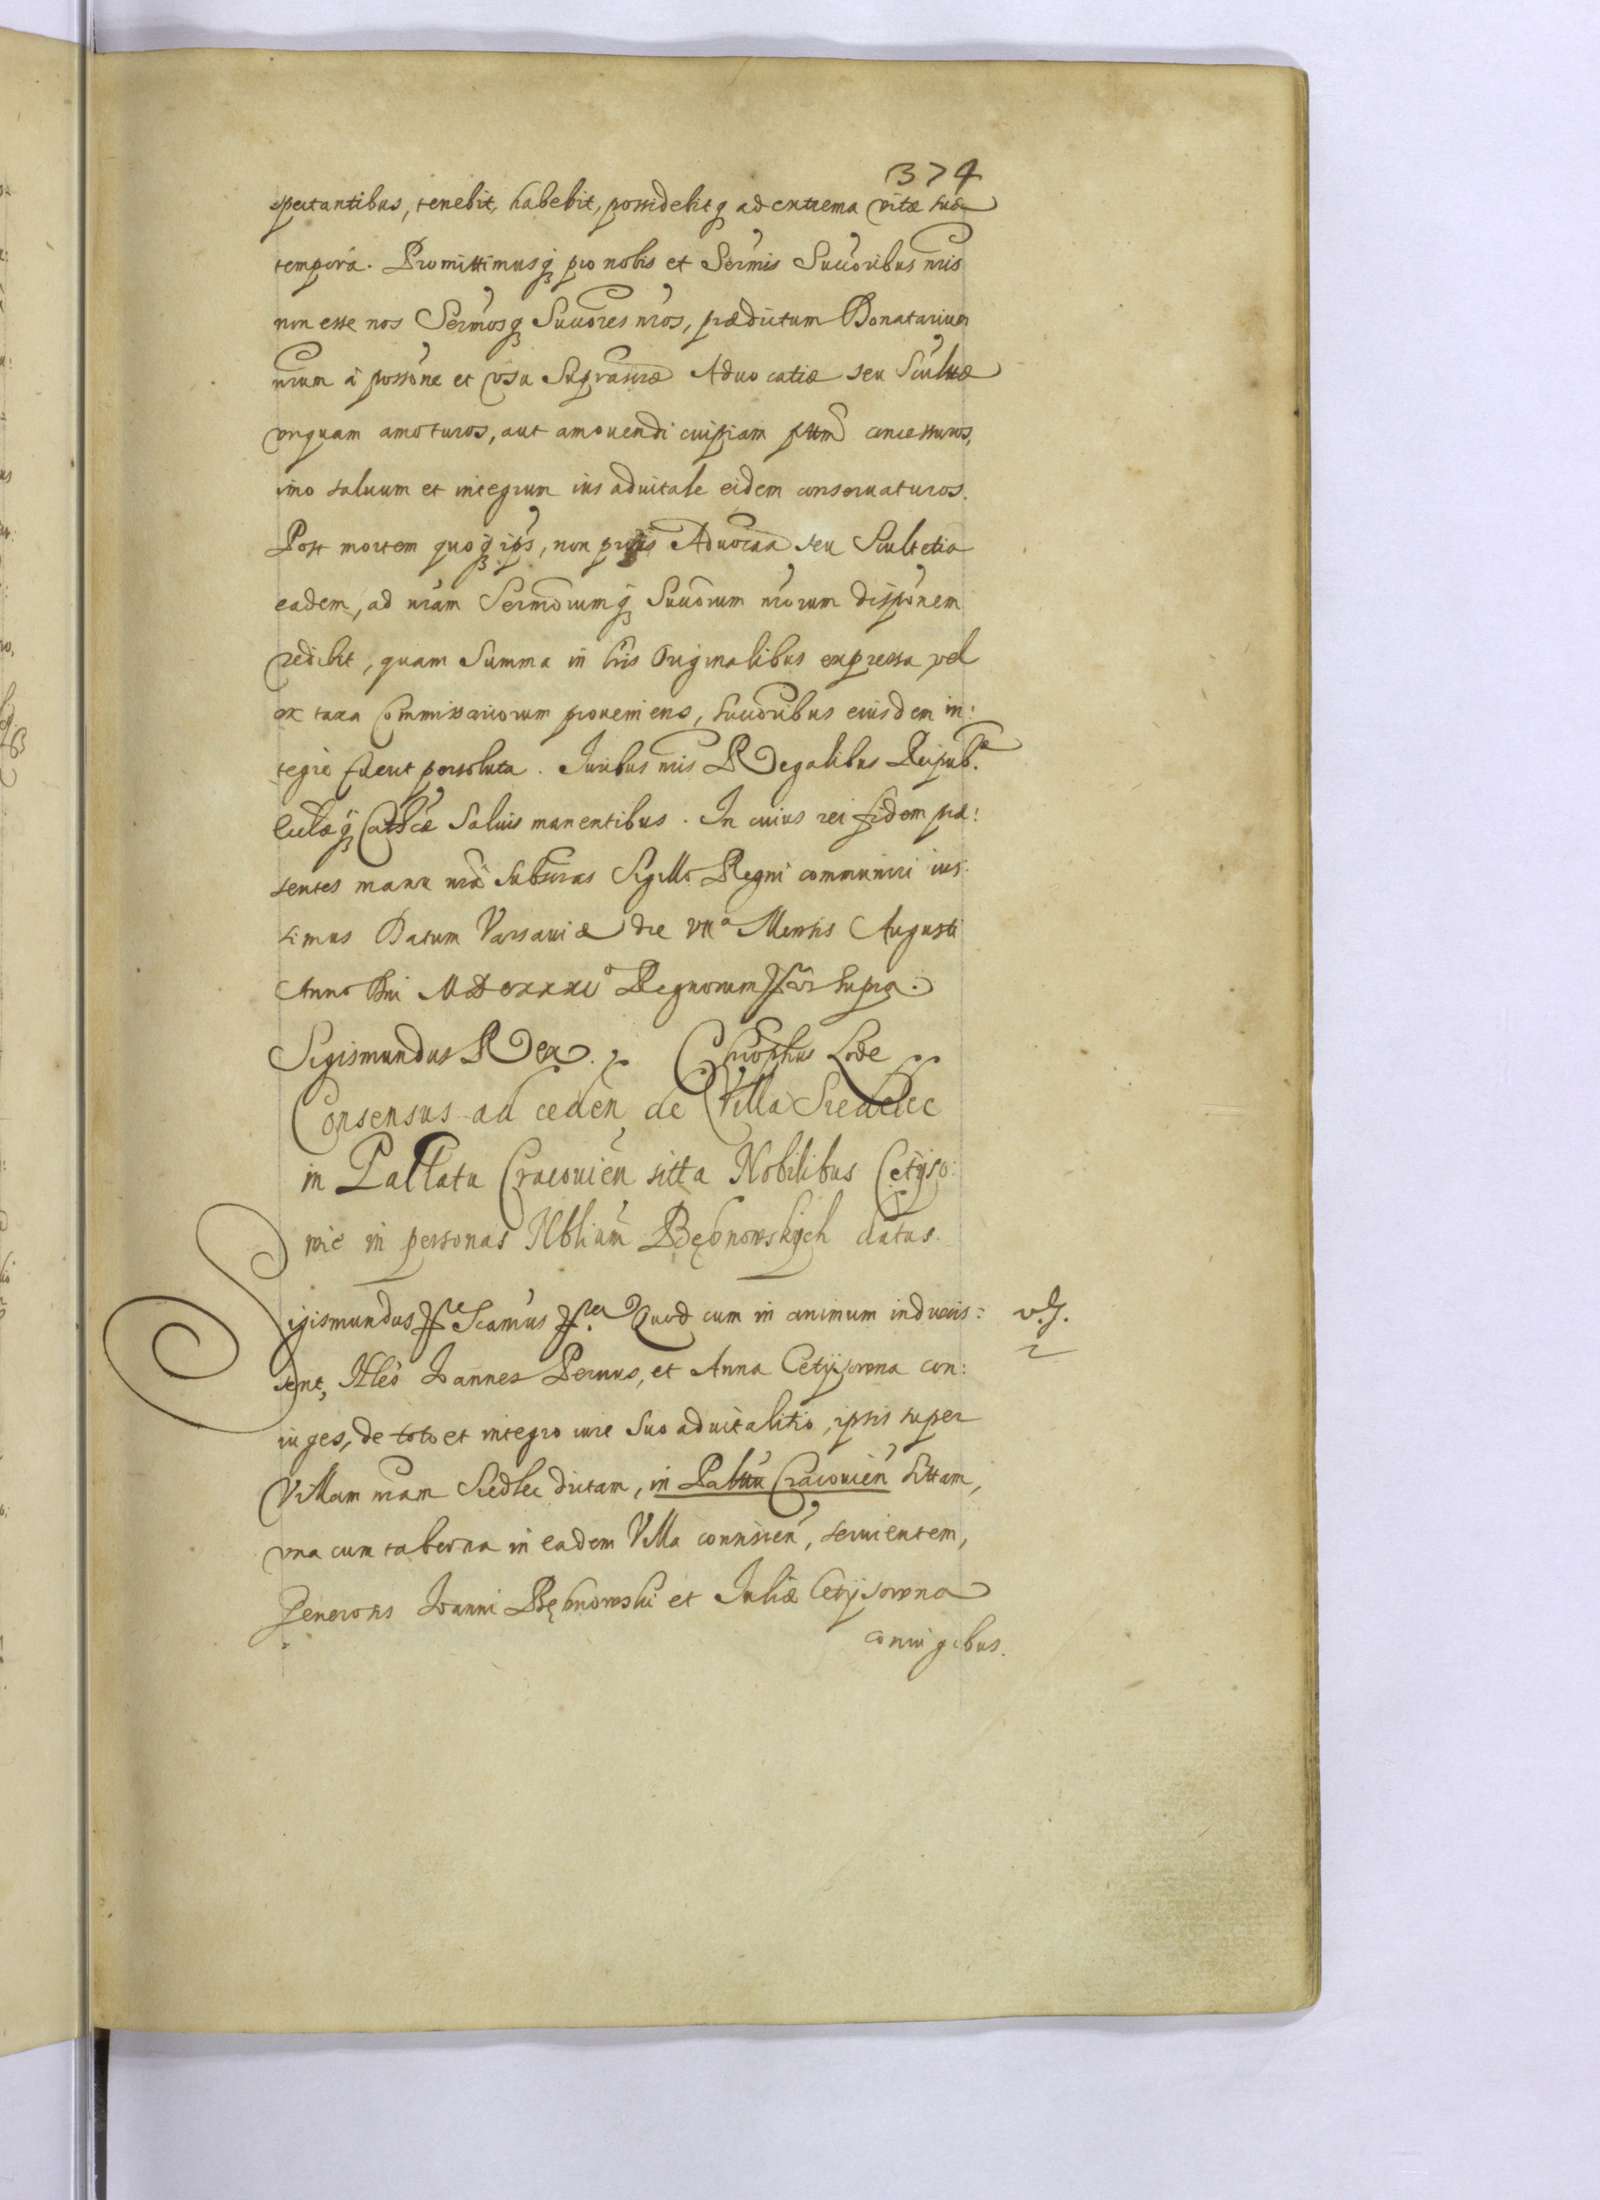 374
spectantibus, tenebit, habebit, possidebitq ad extrema vitæ suæ
tempora. Promittimusq pro nobis et Sermis Succoribus nris
non esse nos Sermosq Succores nros, prædictum Donatarium
nrum à possōne et vsu Suprascræ Aduocatiæ seu Scultæ
vnquam amoturos, aut amouendi cuipiam pttm concessuros,
imo saluum et integrum ius aduitale eidem conseruaturos.
Post mortem quoq ips, non prius Aduocata seu Scultetia
eadem, ad nram Sermorumq Succorum nrorum dispōnem
redibit, quam Summa in lris Originalibus expressa vel
ex taxa Commissariorum proueniens, succoribus eiusdem in:
tegrè fuerit persoluta. Iuribus nris Regalibus Reipub.æ
Ecclæq Cathcæ Saluis manentibus. In cuius rei fidem præ:
sentes manu nra Subscras Sigillo Regni communiri ius:
simus Datum Varsauiæ die VIIa Mensis Augusti
Anno Dni MDCXXXIo Regnorum vt supra.
Sigismundus Rex. Chrophus Lode
Consensus ad ceden de Villa Siedlec
in Pallatu Cracouien sitta Nobilibus Cetÿso:
wie in personas Nbliūm Dębnowskych datus.
Sigismundus Scamus Quod cum in animum induxis: v.g.
sent, Nles Ioannes Pernus, et Anna Cetysowna con:
iuges, de toto et integro iure suo aduitalitio, ipsis super
Villam nram Siedlec dictam, in Palttu Cracouien sittam,
vna cum taberna in eadem Villa consisten, seruientem,
Generosis Ioanni Dębnowski et Iuliæ Cetysowna
coniugibus.